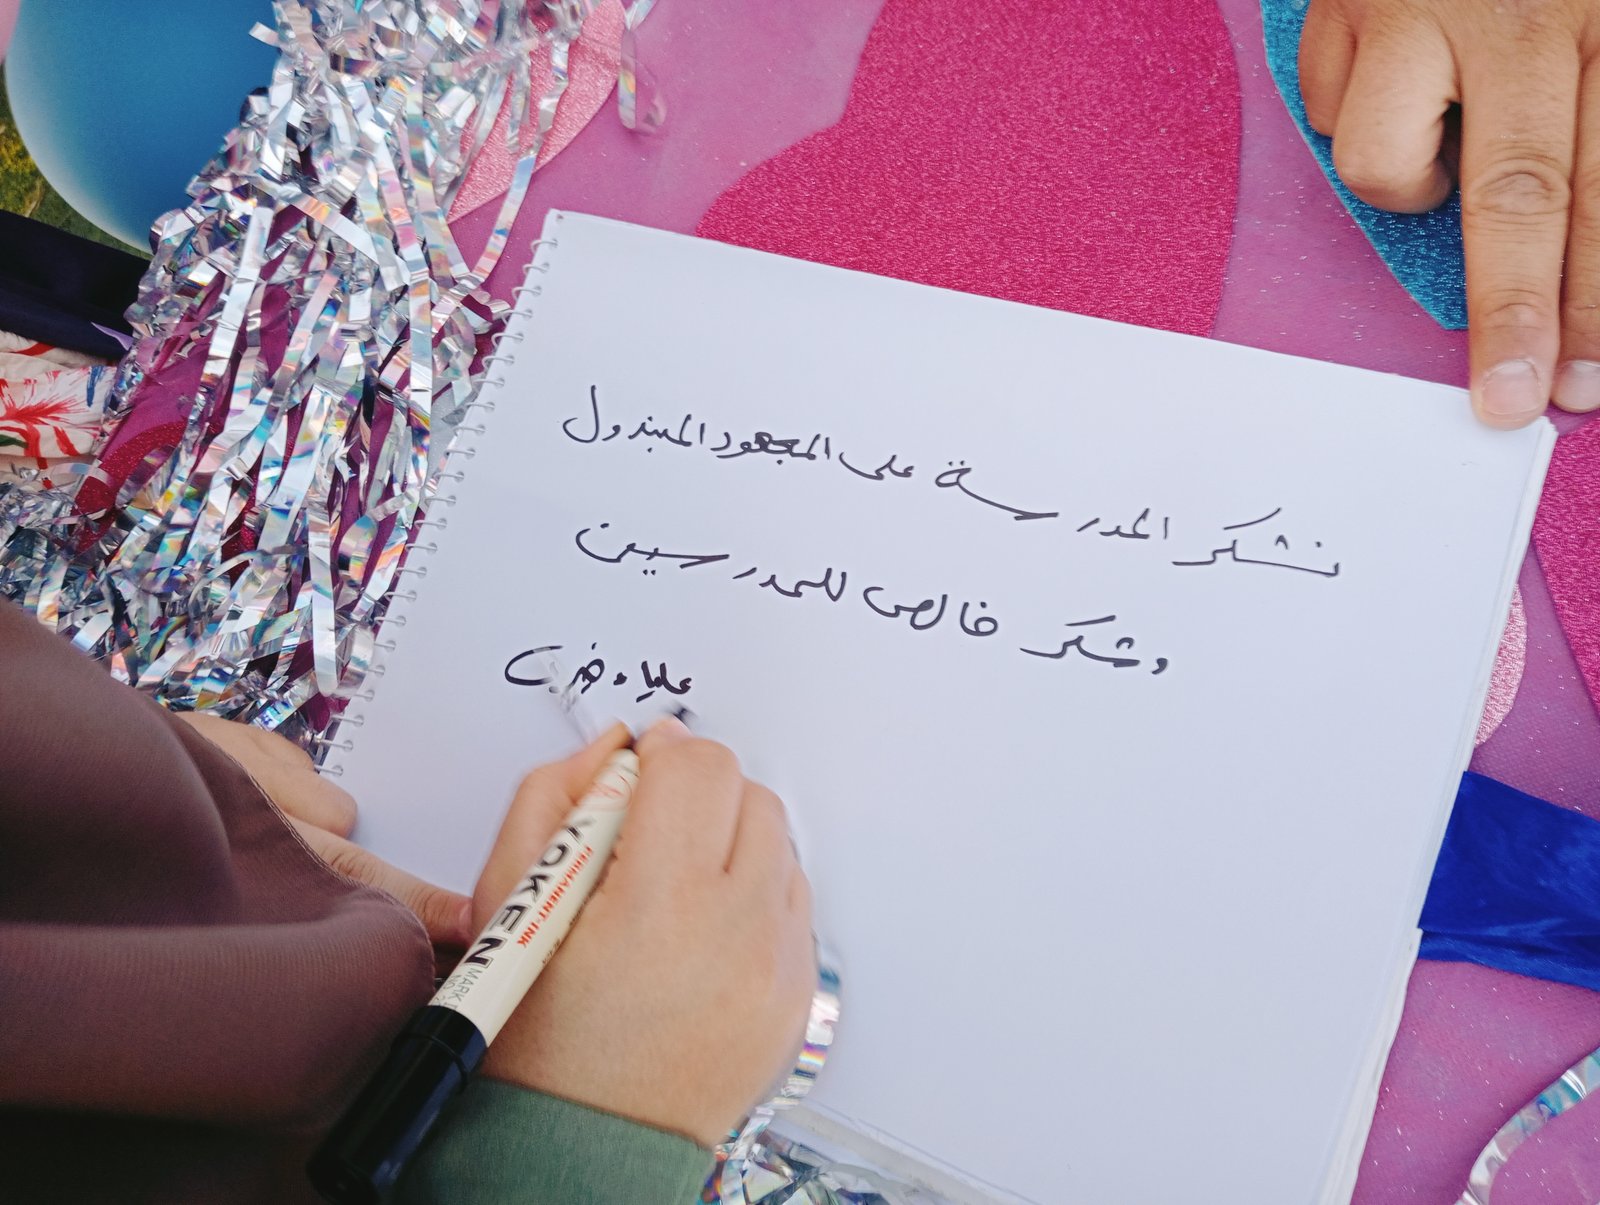 نشكر المدرسة على المجهود المبذول
وشكر خالص للمدرسين
علياء
YOKEN
PERMANENT-INK
MARK